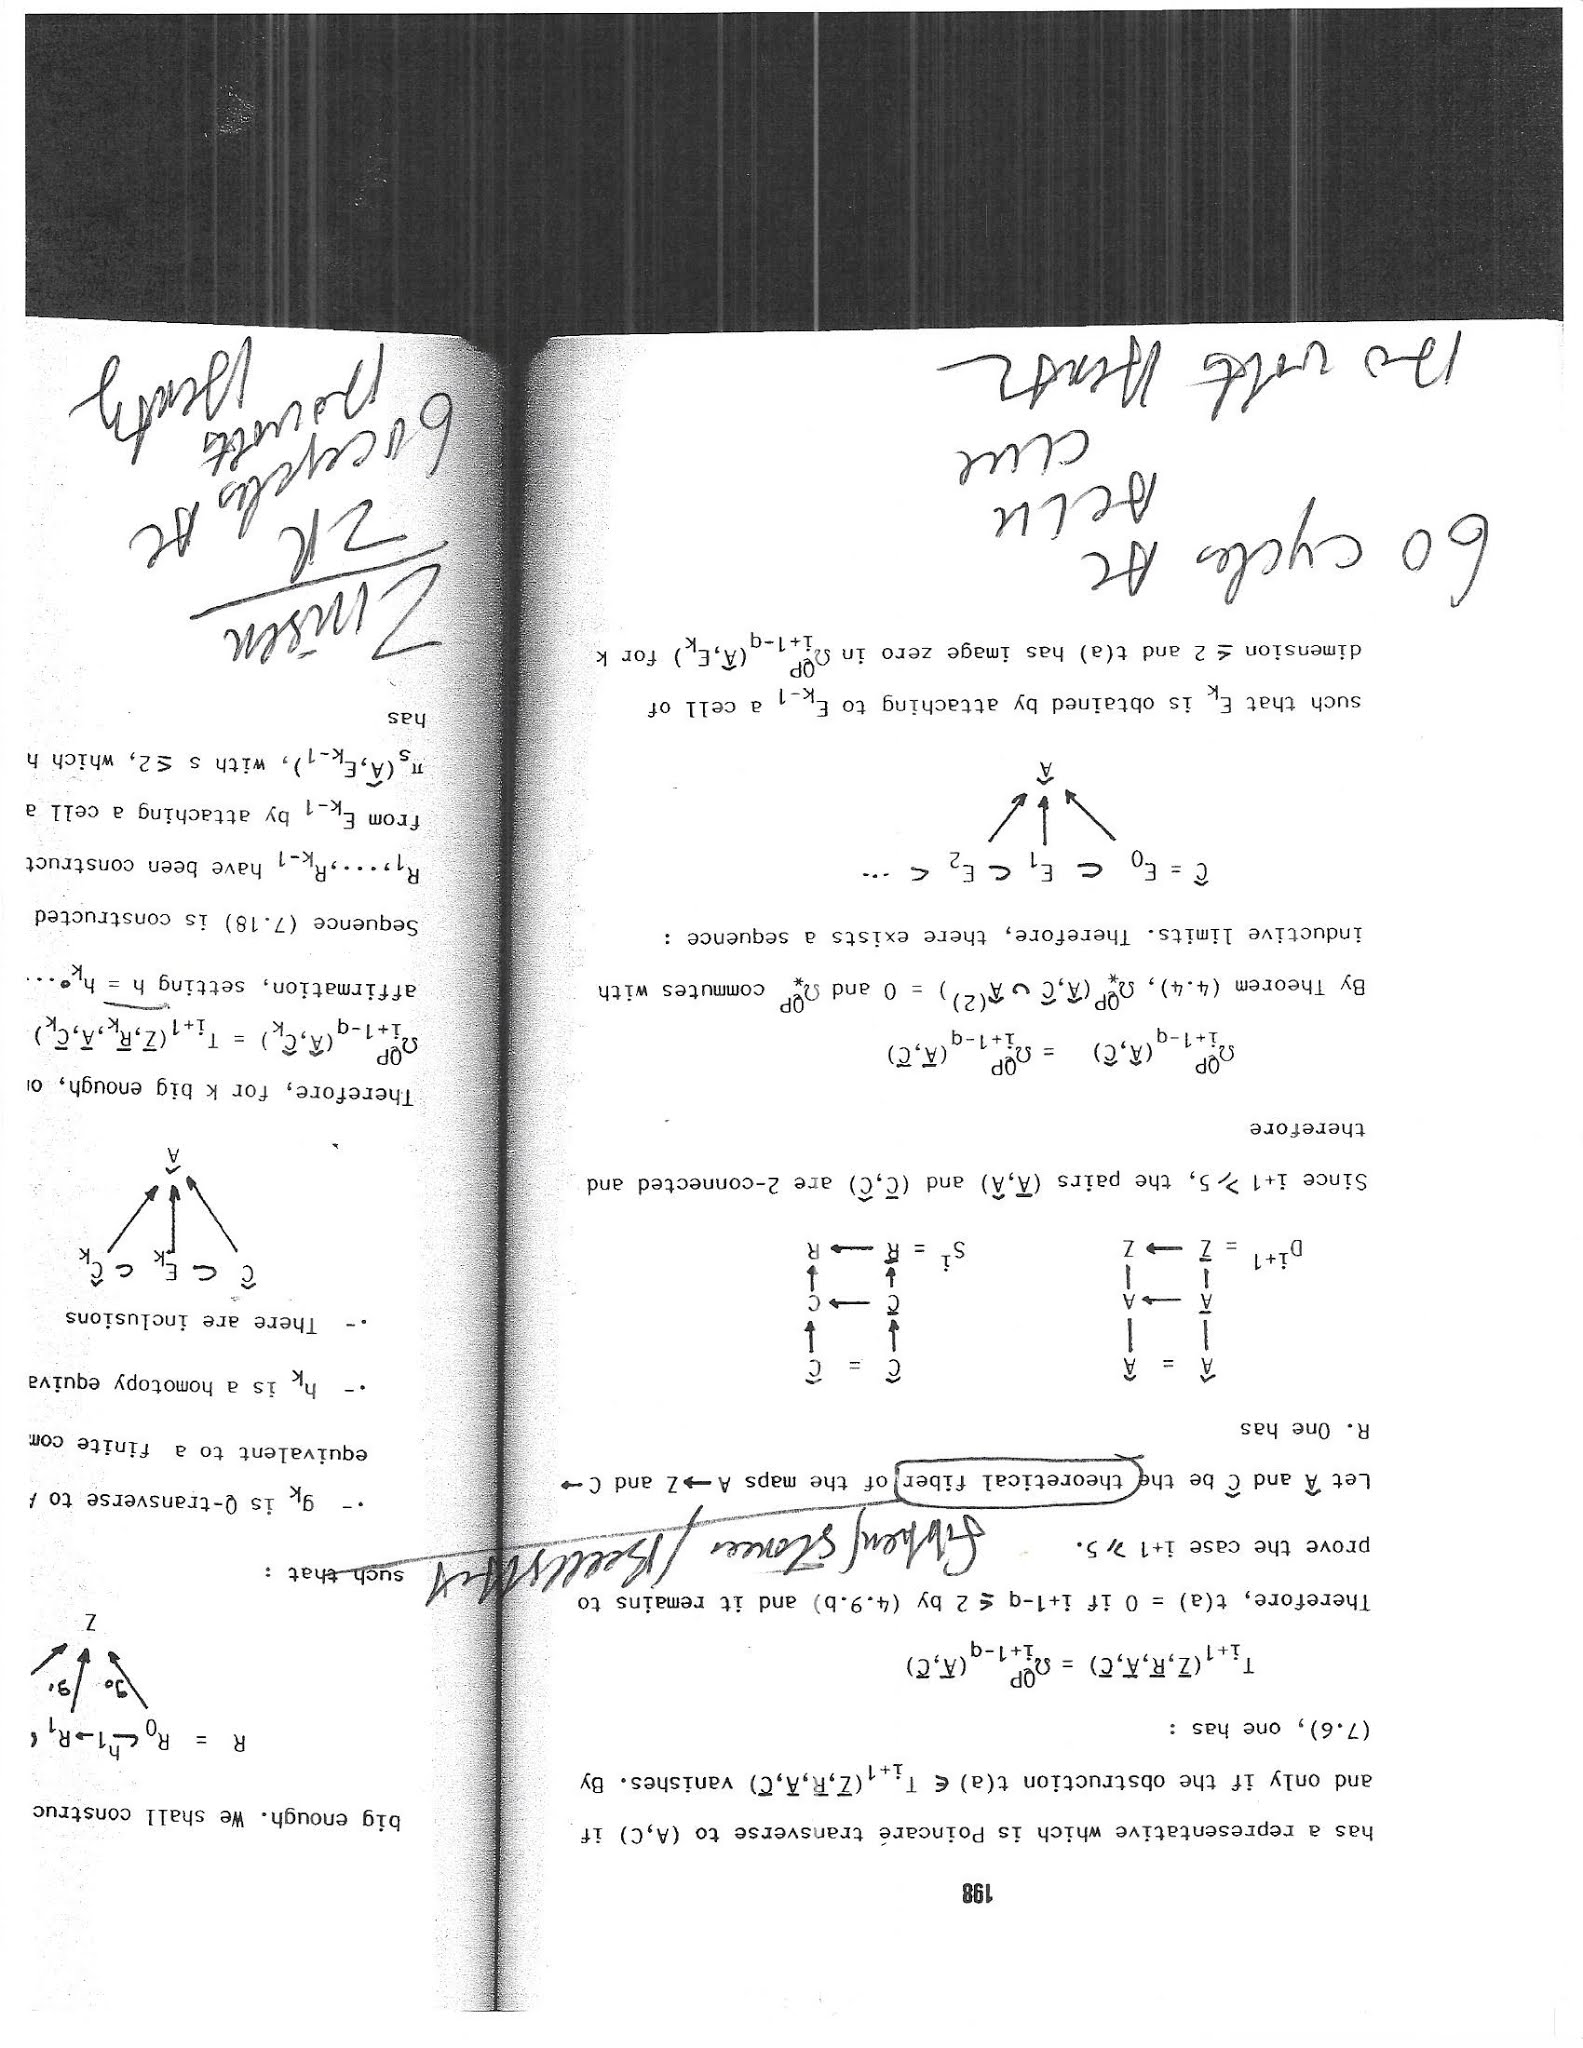 198
has a representative which is Poincaré transverse to (A,C) if
and only if the obstruction t(a) ∈ T_{i+1}(Z̅,R̅,A̅,C̅) vanishes. By
(7.6), one has :
T_{i+1}(Z̅,R̅,A̅,C̅) = Ω^{QP}_{i+1-q}(A̅,C̅)
Therefore, t(a) = 0 if i+1-q ≤ 2 by (4.9.b) and it remains to
prove the case i+1 ⩾ 5.
Let Â and Ĉ be the theoretical fiber of the maps A → Z and C →
R. One has
Â = Â Ĉ = Ĉ
A̅ → A C̅ → C
D^{i+1} = Z̅ → Z S^i = R̅ → R
Since i+1 ⩾ 5, the pairs (A̅,Â) and (C̅,Ĉ) are 2-connected and
therefore
Ω^{QP}_{i+1-q}(Â,Ĉ) = Ω^{QP}_{i+1-q}(A̅,C̅)
By Theorem (4.4), Ω^{QP}_*(Â,Ĉ ∪ Â^{(2)}) = 0 and Ω^{QP}_* commutes with
inductive limits. Therefore, there exists a sequence :
Ĉ = E_0 ⊂ E_1 ⊂ E_2 ⊂ ...
Â
such that E_k is obtained by attaching to E_{k-1} a cell of
dimension ≤ 2 and t(a) has image zero in Ω^{QP}_{i+1-q}(Â,E_k) for k
60 cycles AC
clue
volts
big enough. We shall construc
R = R_0 h_1 R_1
g_0 g_1
Z
such that :
.- g_k is Q-transverse to
equivalent to a finite com
.- h_k is a homotopy equiva
.- There are inclusions
Ĉ ⊂ E_k ⊂ Ĉ_k
Â
Therefore, for k big enough, o
Ω^{QP}_{i+1-q}(Â,Ĉ_k) = T_{i+1}(Z̅,R̅_k,A̅,C̅_k)
affirmation, setting h = h_k∘...
Sequence (7.18) is constructed
R_1,...,R_{k-1} have been construct
from E_{k-1} by attaching a cell a
π_s(Â,E_{k-1}), with s ≤ 2, which h
has
2K
60 cycles AC
volts